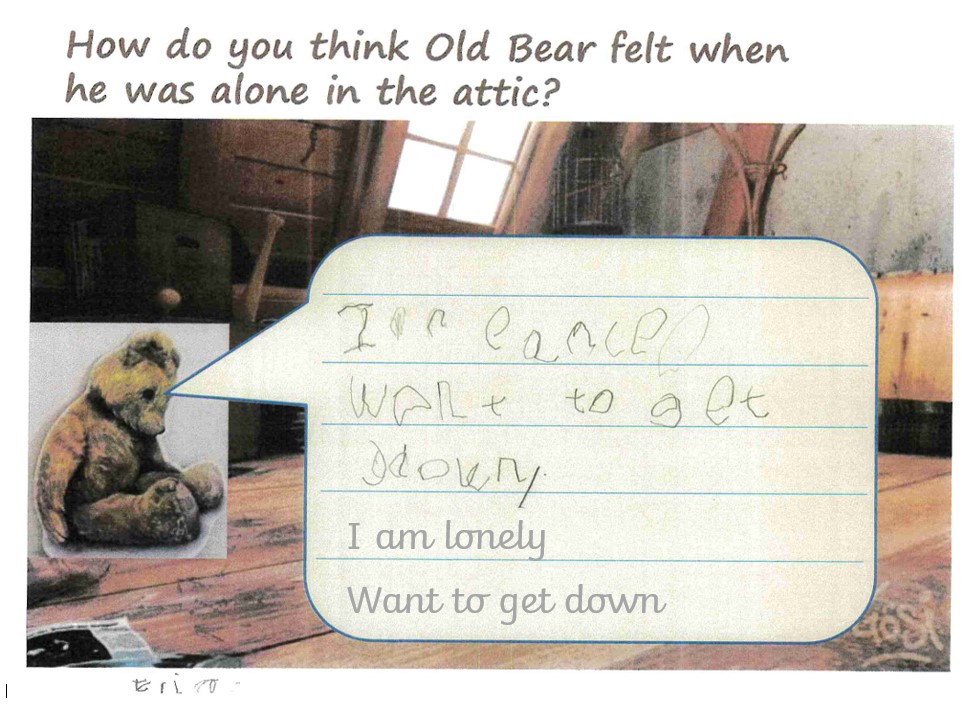 How do you think Old Bear felt when
he was alone in the attic?
want to get
down.
I am lonely
Want to get down